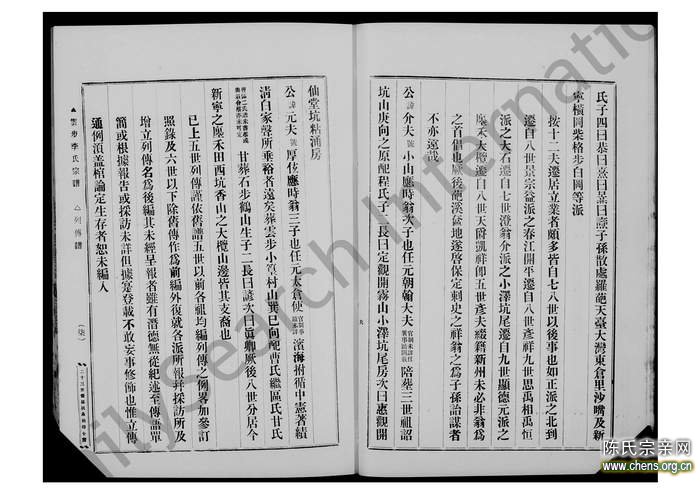 氏子四曰恭曰熹曰㬎曰燾子孫散處羅葩天臺大灣東倉里沙嘴及新
寧橫岡柴格步白岡等派
按十二夫遷居立業者頗多皆自七八世以後事也如正派之北到
遷自八世景宗益派之春江開平遷自八世彥祥九世思禹相恒
派之大石遷自七世翁介派之小澤坑尾遷自九世顯德元派之
麂禾大欖遷自八世天爵凱祥卽五世彥夫綴籍新州未必非翁為
之首倡也厥後葩溪盆地遂啓保定刺史之祥翁之為子孫詒謀者
不亦遠哉
公諱介夫號小山應時翁次子也任元朝翰大夫陪葬三世祖詔
坑山庚向之原配程氏子二長曰定觀開霧山小澤坑尾房次曰憲觀開
仙堂坑粘涌房
公諱元夫號厚位應時翁三子也任元太倉使濱海拊循中憲著績
淸白家聲所垂裕者遠矣葬雲步小篁村山巽巳向配曹氏繼區氏甘氏
甘葬石步鶴山生子二長曰諺次曰真卿厥後八世分居今
新寧之麂禾田西坑香山之大欖山邊皆其支裔也
已上五世列傳謹依舊譜五世以前各祖均編列傳之例畧加參訂
照錄及六世以下除舊傳作爲前編外復就各派所報幷採訪所及
增立列傳名爲後編其未經呈報者雖有潛德無從紀述至傳語單
簡或根據報告或採訪未詳但據寔登載不敢妄事修飾也惟立傳
通例須蓋棺論定生存者恕未編入
▲雲步李氏宗譜 △列傳譜
(柒)
陈氏宗亲网
www.chens.org.cn